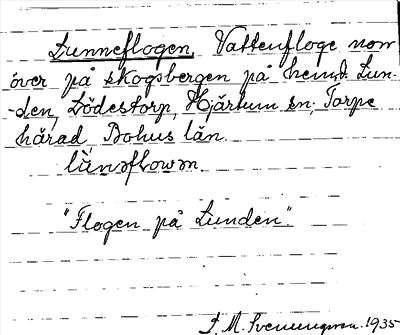 Lunneflogen, Vattenfloge norr
över på skogsbergen på hemd. Lun-
-den, Lödestorp, Hjärtum sn, Torpe
härad, Bohus län.
"Flogen på Lunden".
1935